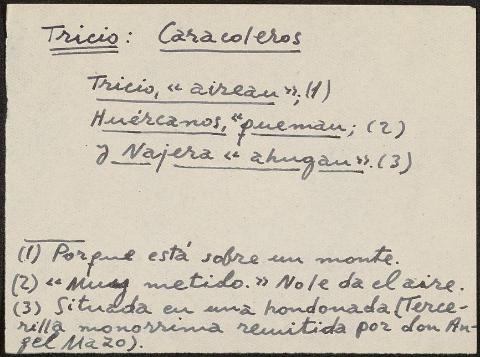 Tricio: Caracoleros
Tricio, "airean"; (1)
Huércanos, "queman; (2)
y Najera "ahugan". (3)
(1) Porque está sobre un monte.
(2) "Muy metido." No le da el aire.
(3) Situada en una hondonada (Terce-
rilla monorrima remitida por don An-
gel Mazo).